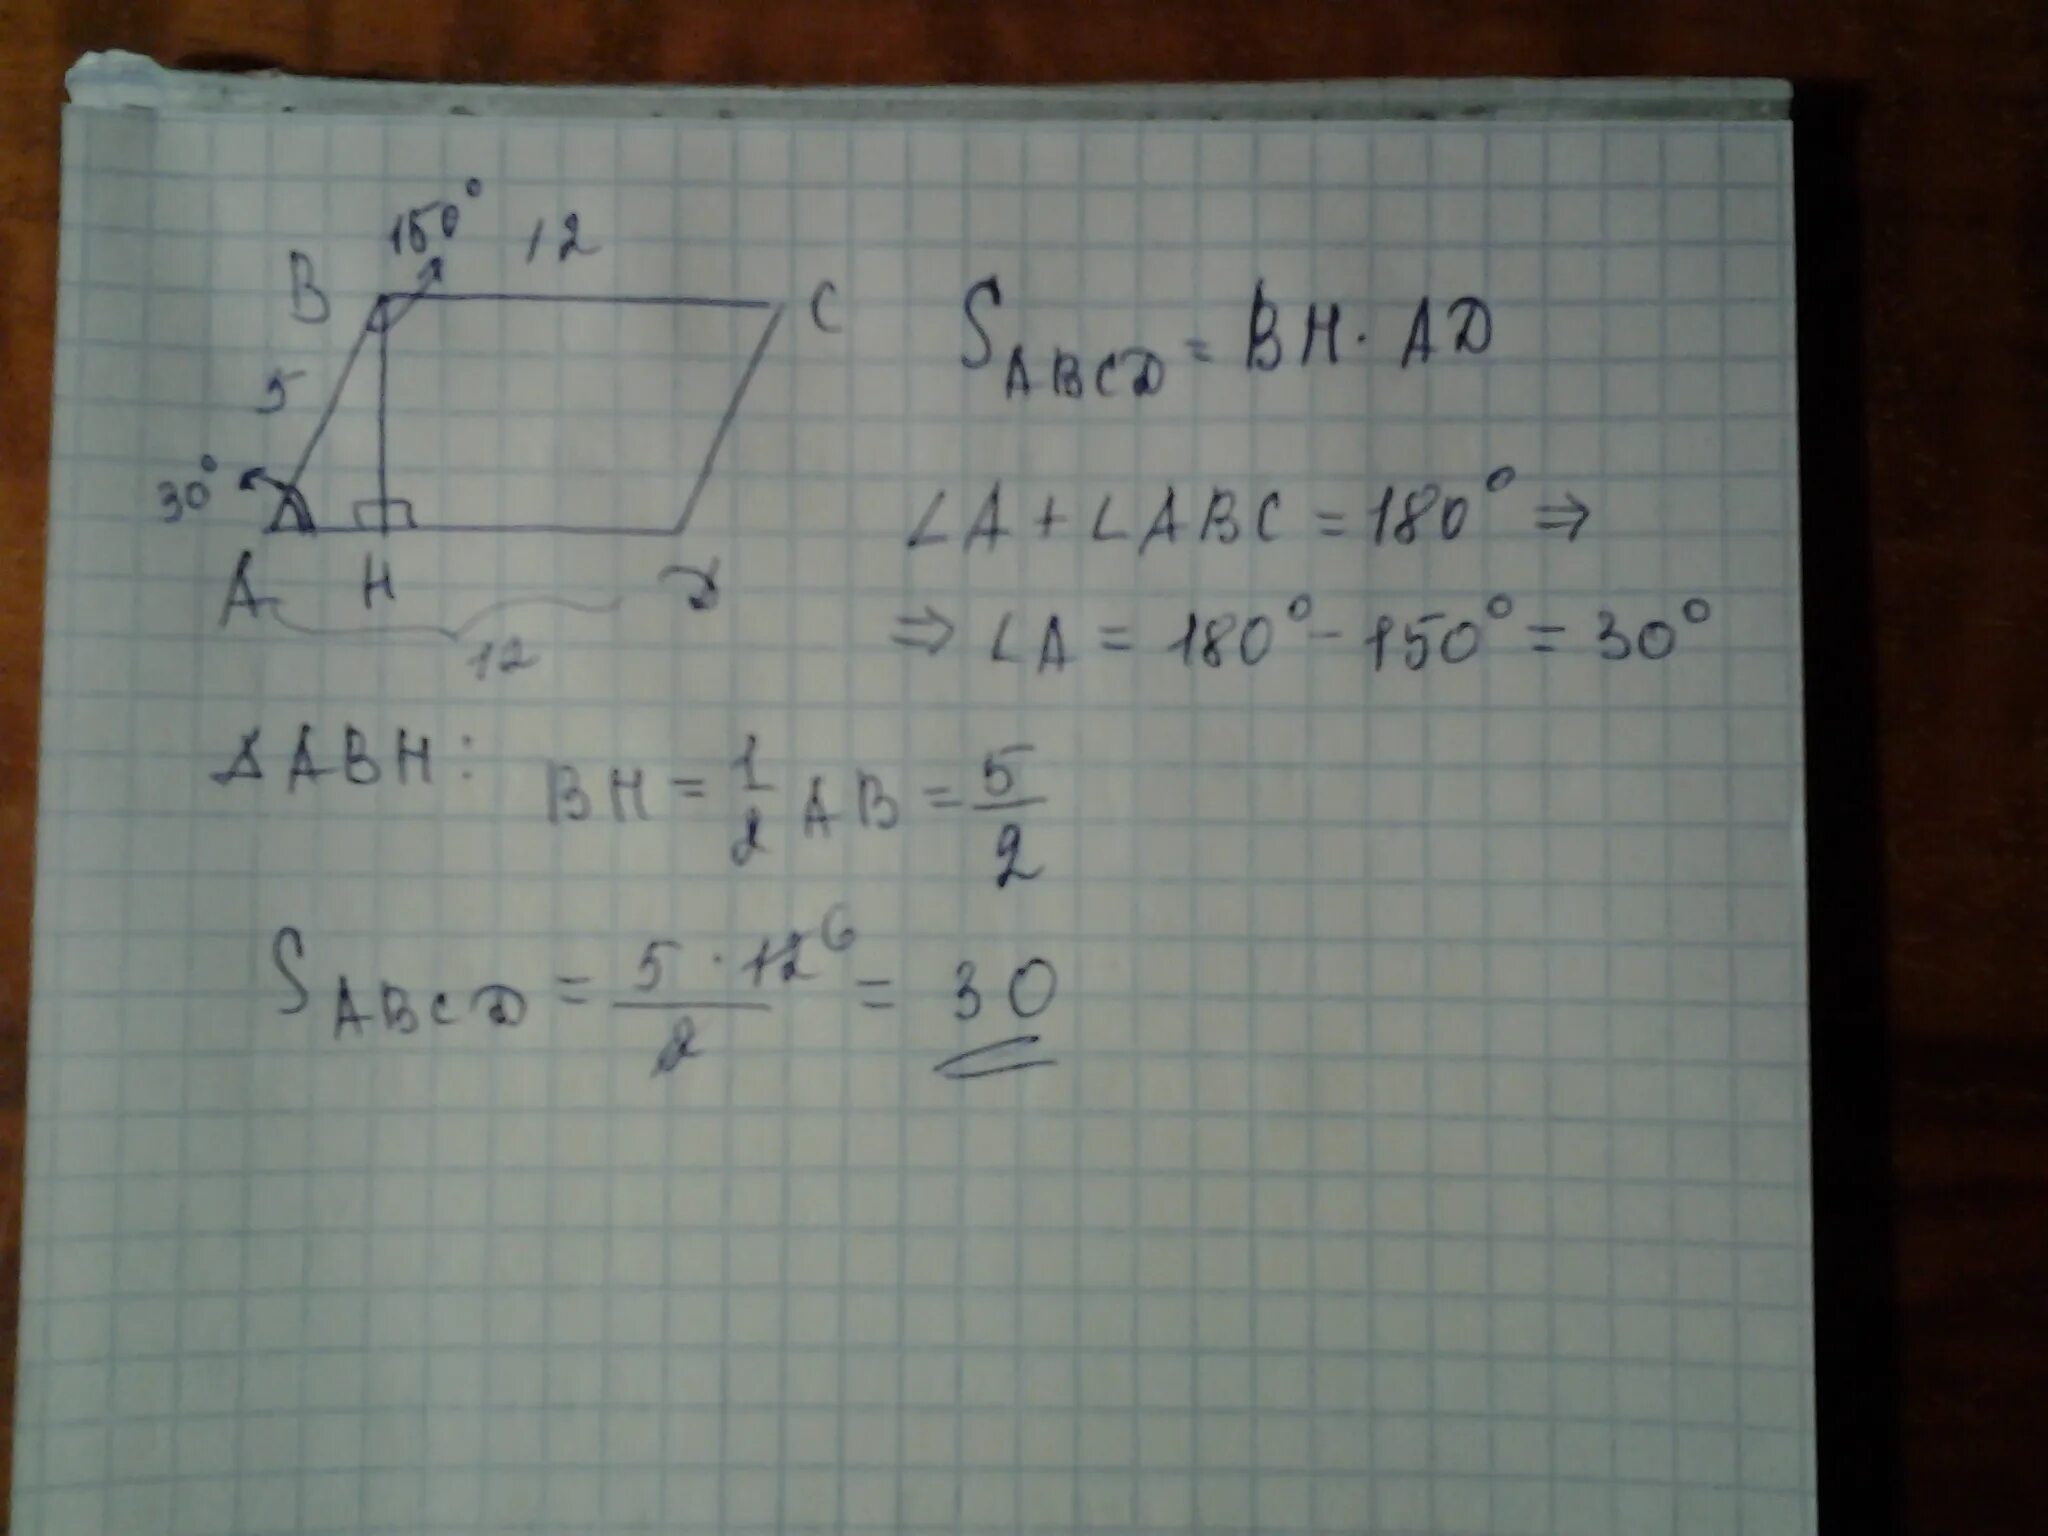 150° 12
B C
5
30°
A H D
12
S ABCD = BH · AD
∠A + ∠ABC = 180° ⇒
⇒ ∠A = 180° - 150° = 30°
ΔABH: BH = 1/2 AB = 5/2
S ABCD = 5 · 12 6 / 2 = 30